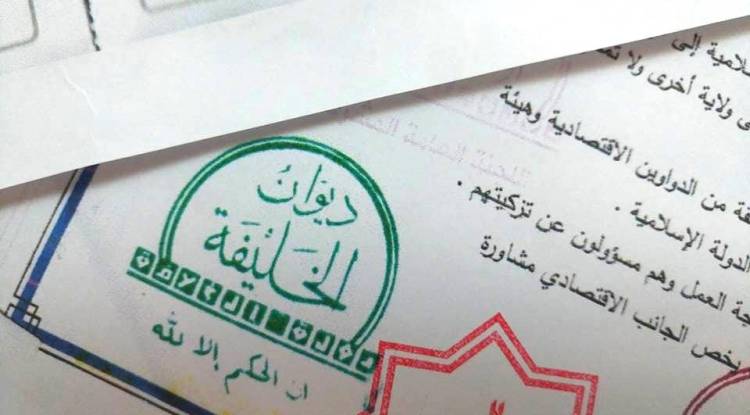 سلامية إلى
ى ولاية أخرى ولا تم
فة من الدواوين الاقتصادية وهيئة
الدولة الإسلامية .
حة العمل وهم مسؤولون عن تزكيتهم .
يخص الجانب الاقتصادي مشاورة
اللجنة العامة
ديوان
الخليفة
ان الحكم إلا لله